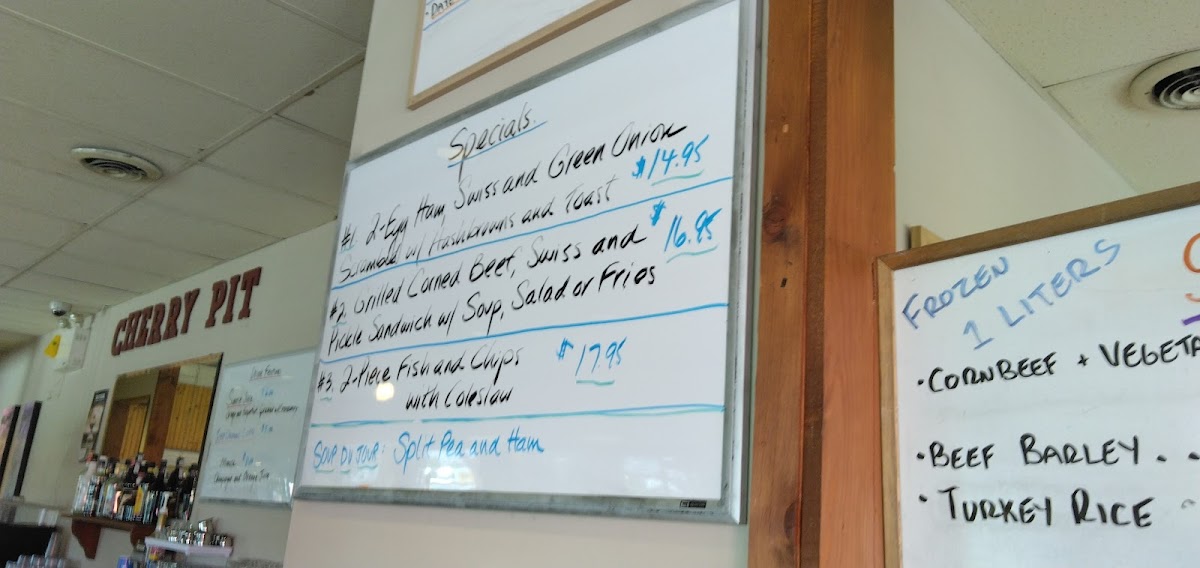 DATE
Specials.
#1. 2-Egg Ham, Swiss and Green Onion
Scramble w/ Hashbrowns and Toast $14.95
#2. Grilled Corned Beef, Swiss and $16.95
Pickle Sandwich w/ Soup, Salad or Fries
#3. 2-Piece Fish and Chips $17.95
with Coleslaw
SOUP DU JOUR: Split Pea and Ham
CHERRY PIT
FROZEN
1 LITERS
• CORNBEEF + VEGETA
• BEEF BARLEY . .
• TURKEY RICE